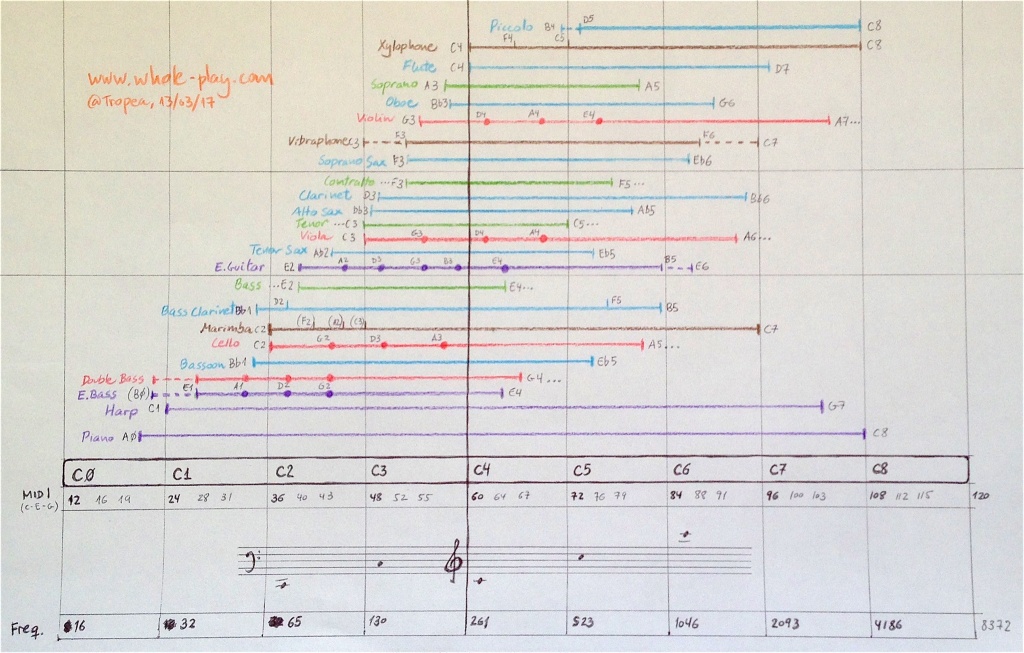 Piccolo B4 D5 C8
Xylophone C4 F4 C5 C8
Flute C4 D7
www.whole-play.com
@Tropea, 13/03/17
Soprano A3 A5
Oboe Bb3 G6
Violin G3 D4 A4 E4 A7...
Vibraphone C3 F3 F6 C7
Soprano Sax F3 Eb6
Contralto ...F3 F5...
Clarinet D3 Bb6
Alto Sax Db3 Ab5
Tenor ...C3 C5...
Viola C3 G3 D4 A4 A6...
Tenor Sax Ab2 Eb5
E.Guitar E2 A2 D3 G3 B3 E4 B5 E6
Bass ...E2 E4...
Bass Clarinet Bb1 D2 F5 B5
Marimba C2 (F2) (A2) (C3) C7
Cello C2 G2 D3 A3 A5...
Bassoon Bb1 Eb5
Double Bass G4...
E.Bass (BØ) E1 A1 D2 G2 E4
Harp C1 G7
Piano AØ C8
CØ C1 C2 C3 C4 C5 C6 C7 C8
MIDI 12 16 19 24 28 31 36 40 43 48 52 55 60 64 67 72 76 79 84 88 91 96 100 103 108 112 115 120
(C-E-G)
Freq. 16 32 65 130 261 523 1046 2093 4186 8372